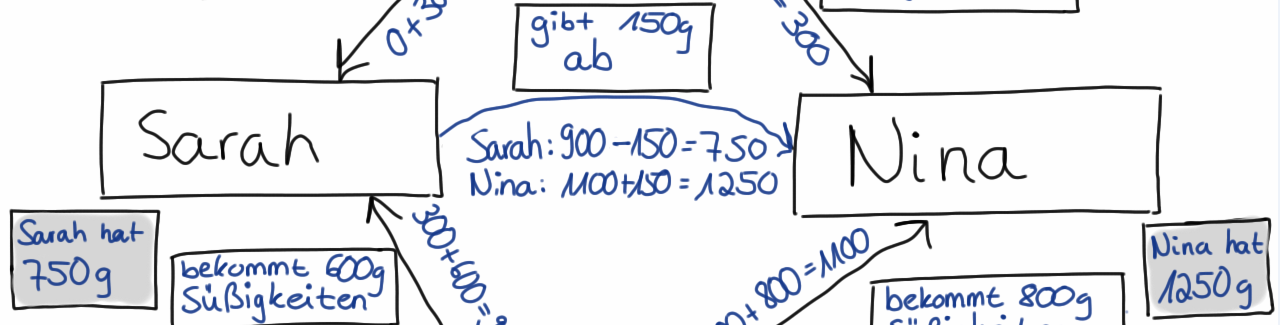 gibt 150g
ab
0+3
= 300
Sarah
Sarah: 900-150=750
Nina: 1100+150=1250
Nina
Sarah hat
750g
bekommt 600g
Süßigkeiten
300+600=
+ 800=1100
bekommt 800g
Nina hat
1250g